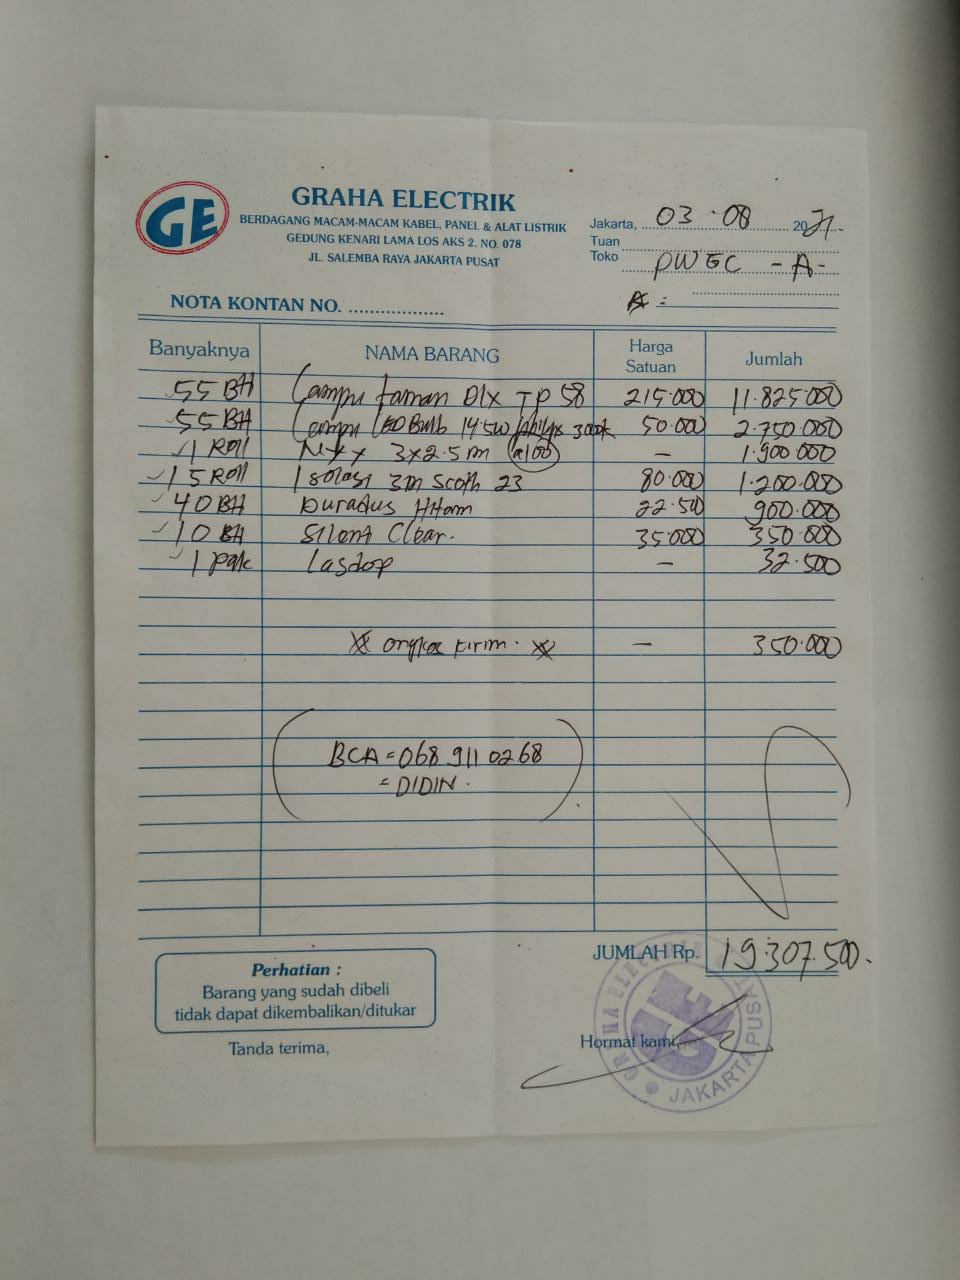 GE
GRAHA ELECTRIK
BERDAGANG MACAM-MACAM KABEL, PANEL & ALAT LISTRIK
GEDUNG KENARI LAMA LOS AKS 2. NO. 078
JL. SALEMBA RAYA JAKARTA PUSAT
Jakarta, 03-08 2021.
Tuan
Toko PWGC -A-
NOTA KONTAN NO. ....................
Banyaknya NAMA BARANG Harga Satuan Jumlah
55 BH Lampu taman Dlx TP 58 215.000 11.825.000
55 BH Lampu LED Bulb 14.5W philips 3000k 50.000 2.750.000
1 Roll NYY 3x2.5m @100 - 1.900.000
15 Roll Isolasi 3m Scoth 23 80.000 1.200.000
40 BH Duradus Hitam 22.500 900.000
10 BH Silent Clear. 35.000 350.000
1 pak Lasdop - 32.500
ongkos kirim. - 350.000
BCA = 068 911 0268
= DIDIN.
JUMLAH Rp. 19.307.500.
Perhatian :
Barang yang sudah dibeli
tidak dapat dikembalikan/ditukar
Tanda terima,
Hormat kami,
GRAHA ELECTRIK
JAKARTA PUSAT